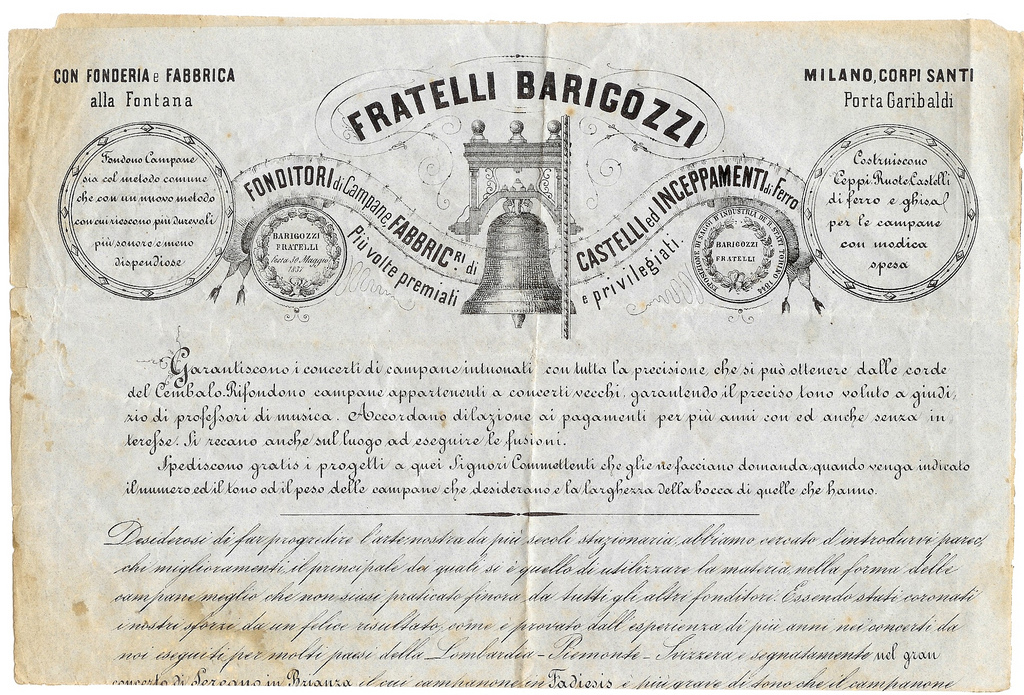 CON FONDERIA e FABBRICA
alla Fontana
FRATELLI BARIGOZZI
MILANO, CORPI SANTI
Porta Garibaldi
Fondono Campane
sia col metodo comune
che con un nuovo metodo
con cui riescono più durevoli
più sonore e meno
dispendiose
FONDITORI di Campane, FABBRIC.RI di
CASTELLI ed INCEPPAMENTI di Ferro
Più volte premiati
e privilegiati.
BARIGOZZI
FRATELLI
30 Maggio
ESPOSIZIONE DI SAGGI D'INDUSTRIA DE R. STATI TORINO 1844
BARIGOZZI
FRATELLI
Costruiscono
Ceppi, Ruote, Castelli
di ferro e ghisa
per le campane
con modica
spesa
Garantiscono i concerti di campane intuonati con tutta la precisione, che si può ottenere dalle corde
del Cembalo. Rifondono campane appartenenti a concerti vecchi, garantendo il preciso tono voluto a giudi-
zio di professori di musica. Accordano dilazione ai pagamenti per più anni con ed anche senza in
teresse. Si recano anche sul luogo ad eseguire le fusioni.
Spediscono gratis i progetti a quei Signori Committenti che glie ne facciano domanda, quando venga indicato
il numero ed il tono od il peso delle campane che desiderano e la larghezza della bocca di quelle che hanno.
Desiderosi di far progredire l'arte nostra da più secoli stazionaria, abbiamo cercato d'introdurvi parec,
chi miglioramenti, il principale da quali si è quello di utilizzare la materia, nella forma delle
campane meglio che non siasi praticato finora da tutti gli altri fonditori. Essendo stati coronati
i nostri sforzi da un felice risultato, come è provato dall'esperienza di più anni nei concerti da
noi eseguiti per molti paesi della Lombardia - Piemonte - Svizzera e segnatamente nel gran
concerto di Seregno in Brianza il cui campanone in Fadiesis è più grave di tono che il campanone